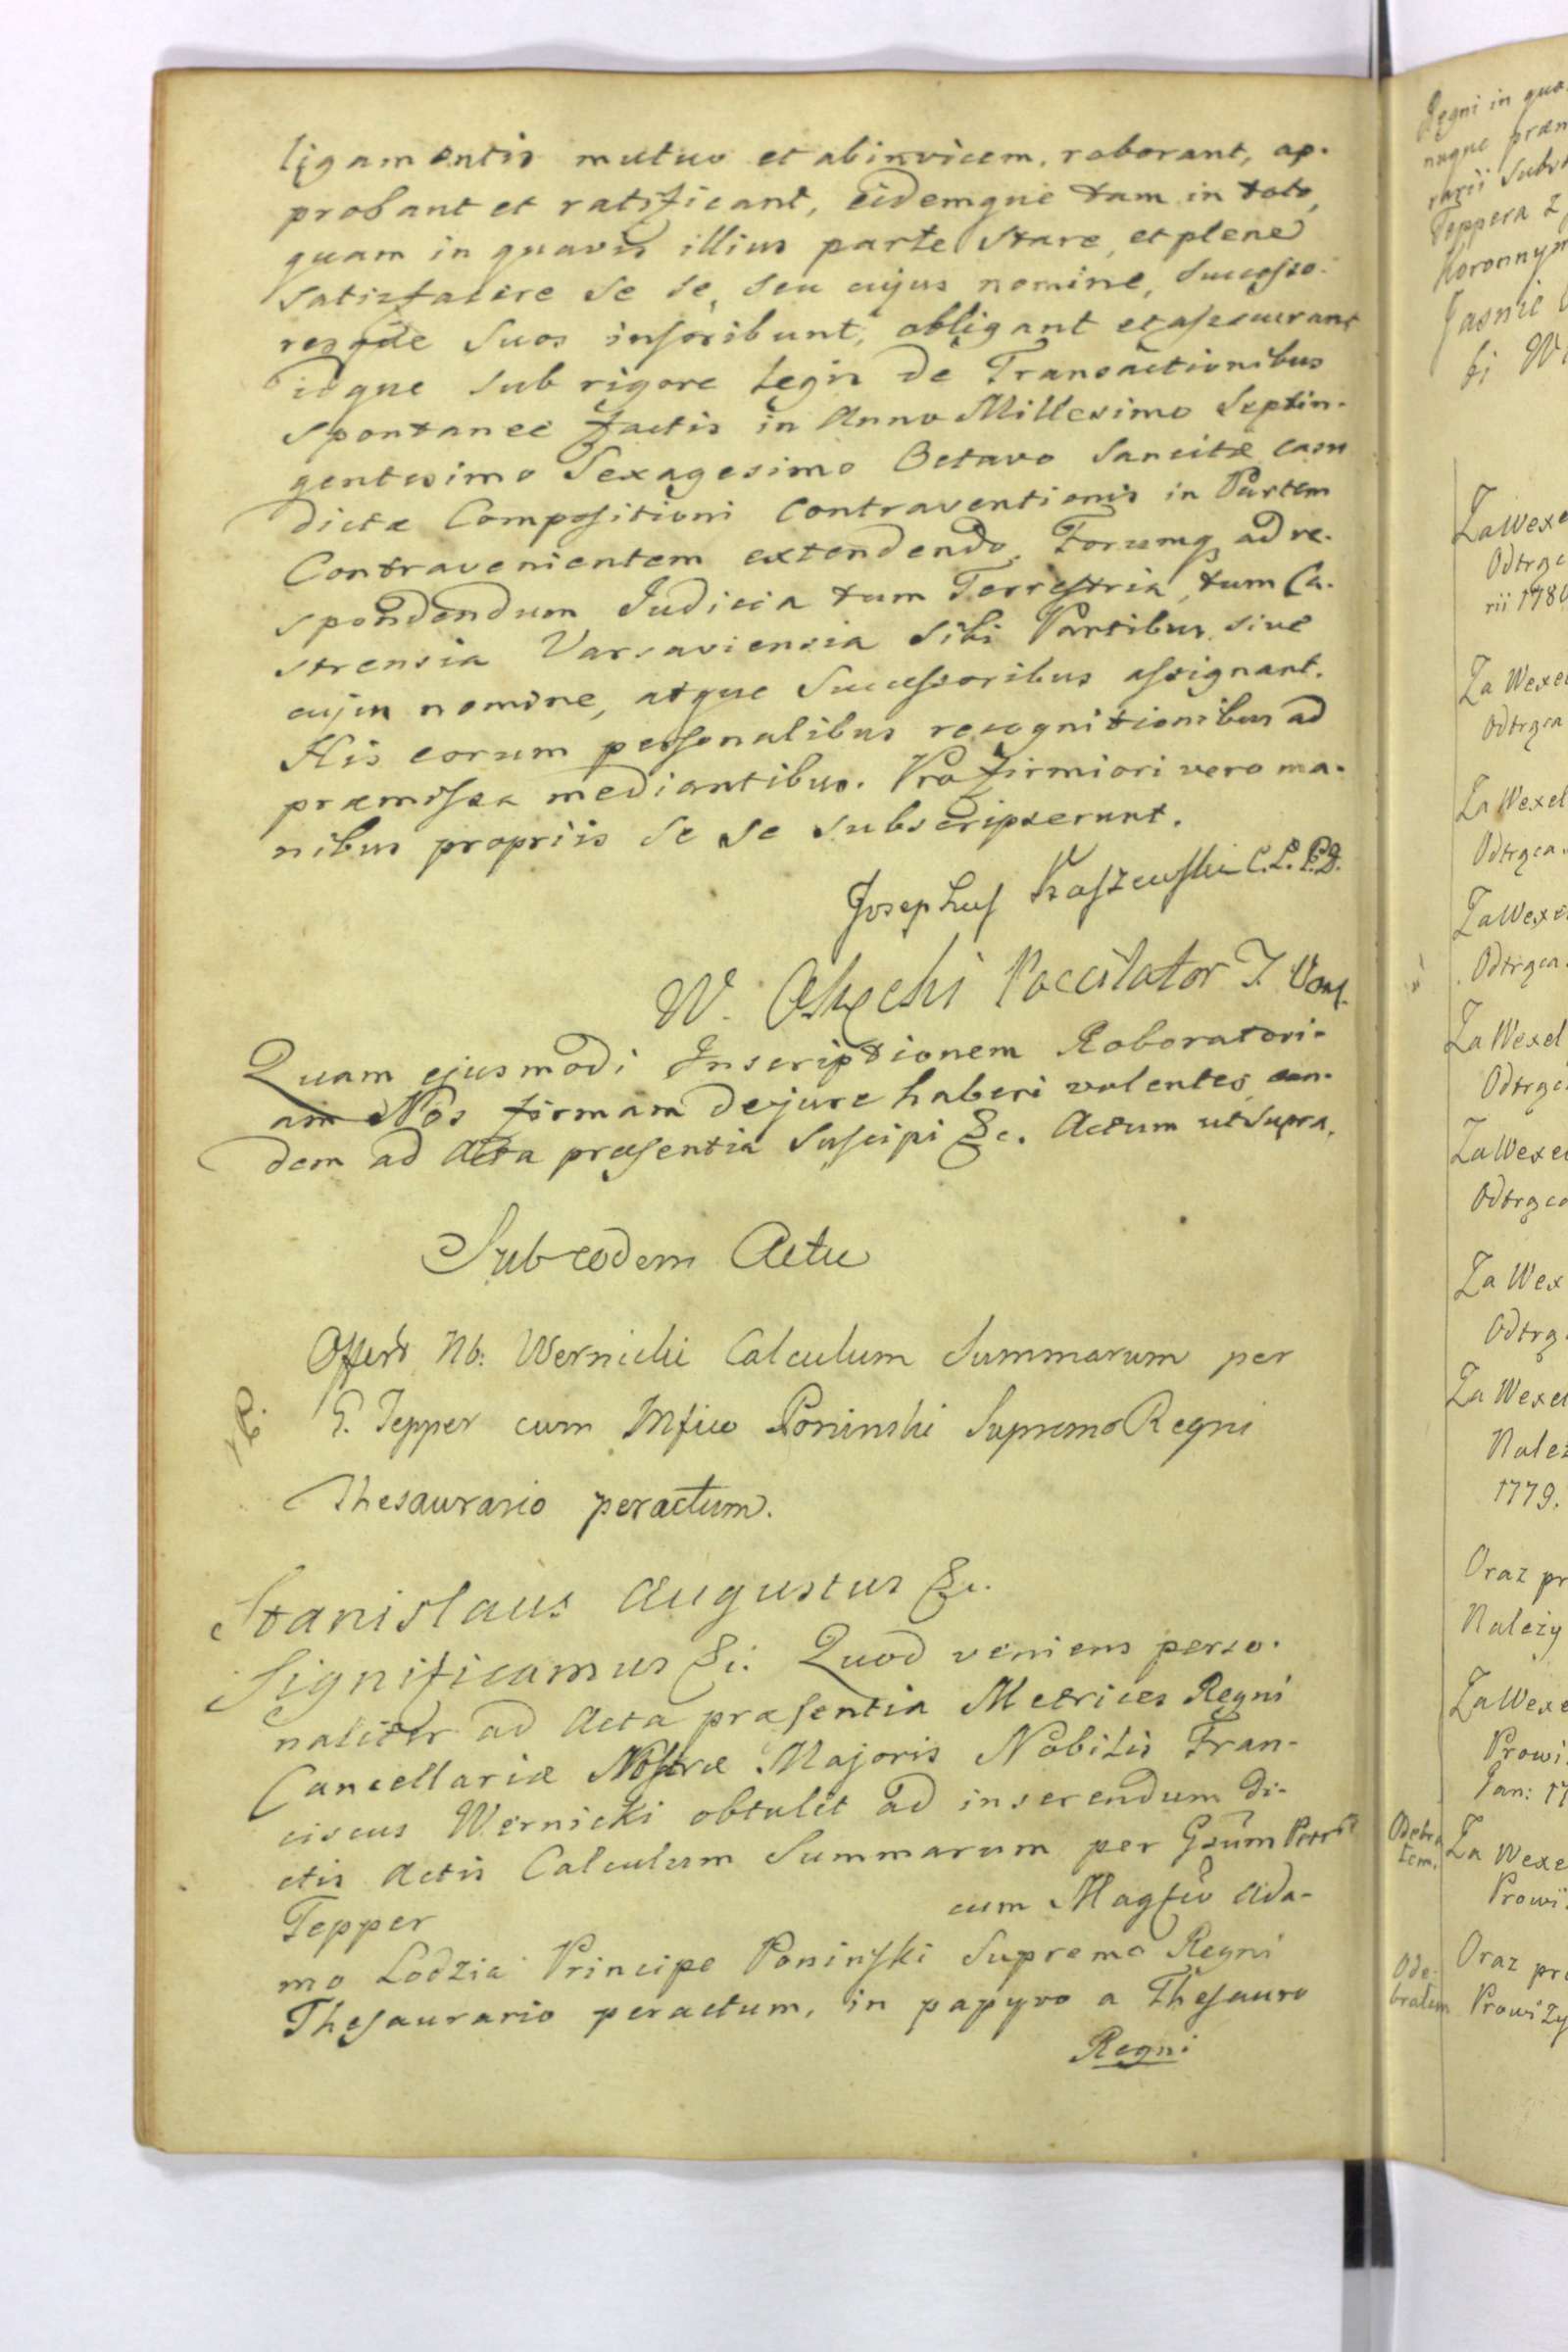 ligamentis mutuo et abinvicem, roborant, ap-
probant et ratificant, eidemque tam in toto,
quam in quavis illius parte stare, et plene
satisfacere se se, seu cujus nomine, Successo-
resqde Suos inscribunt, obligant et assecurant
idque sub rigore Legis de Transactionibus
spontanee factis in Anno Millesimo Septin-
gentesimo Sexagesimo Octavo Sancitæ cum
dictæ Compositioni Contraventionis in Partem
Contravenientem extendendo, Forumq ad re-
spondendum Judicia tum Terrestria, tum Ca-
strensia Varsaviensia Sibi Partibus, sive
cujus nomine, atque Successoribus assignant.
His eorum personalibus recognitionibus ad
præmissa mediantibus. Pro firmiori vero ma-
nibus propriis se se subscripserunt.
Josephus Kraszewski C. L. P. D.
W. Pocillator T.
Quam ejusmodi Inscriptionem Roboratori-
am Nos firmam dejure haberi volentes, ean-
dem ad Acta præsentia Suscipi &c. Actum ut Supra.
Sub eodem Actu
Offert Nb: Wernicki Calculum Summarum per
G. Tepper cum Mfico Poninski Supremo Regni
Thesaurario peractum.
Stanislaus Augustus &c.
Significamus &c: Quod veniens perso-
naliter ad Acta præsentia Metrices Regni
Cancellariæ Nostræ Majoris Nobilis Fran-
ciscus Wernicki obtulit ad inserendum di-
ctis Actis Calculum Summarum per Gsum
Tepper cum Magfco Ada-
mo Lodzia Principe Poninski Supremo Regni
Thesaurario peractum, in papyro a Thesauro
Regni
Regni in
Teppera z
Jasnie
Za Wexe
Odtrąc
rii 178
Za Wexe
Odtrąca
Za Wexel
Odtrąca
Za Wexe
Odtrąca
Za Wexel
Odtrąc
Za Wexe
Odtrąca
Za Wex
Odtrą
Za Wexe
Nale
1779.
Oraz pr
Należy
Za Wexe
Prowi
Jan: 17
Odebra
Za Wexe
Prowi
Ode-
brałem
Oraz pr
Prowizy